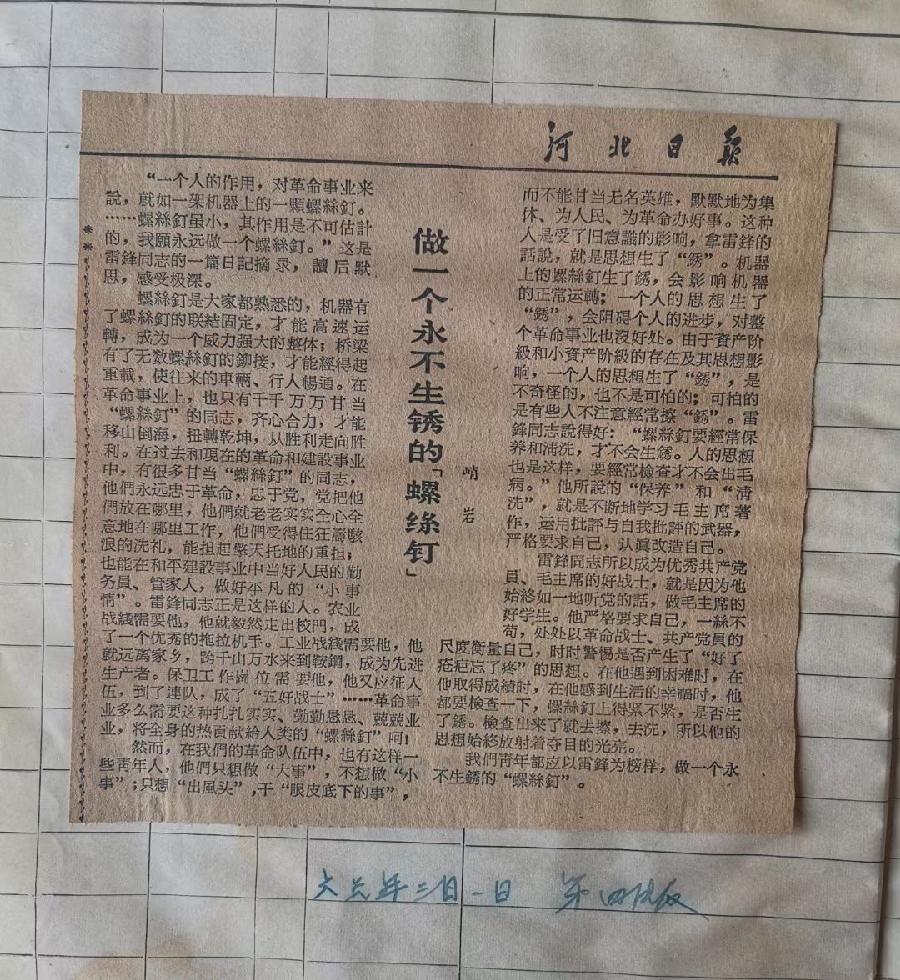 河北日报
做一个永不生锈的「螺丝钉」
峭岩
“一个人的作用，对革命事业来
說，就如一架机器上的一顆螺絲釘。
……螺絲釘虽小，其作用是不可估計
的，我願永远做一个螺絲釘。”这是
雷鋒同志的一篇日記摘录，讀后默
思，感受极深。
螺絲釘是大家都熟悉的，机器有
了螺絲釘的联結固定，才能高速运
轉，成为一个威力强大的整体；桥梁
有了无数螺絲釘的鉚接，才能經得起
重载，使往来的車輛、行人暢通。在
革命事业上，也只有千千万万甘当
“螺絲釘”的同志，齐心合力，才能
移山倒海，扭轉乾坤，从胜利走向胜
利。在过去和現在的革命和建設事业
中，有很多甘当“螺絲釘”的同志，
他們永远忠于革命，忠于党，党把他
們放在哪里，他們就老老实实全心全
意地在哪里工作，他們受得住狂濤駭
浪的洗礼，能担起擎天托地的重担，
也能在和平建設事业中当好人民的勤
务員、管家人，做好平凡的“小事
情”。雷鋒同志正是这样的人。农业
战綫需要他，他就毅然走出校門，成
了一个优秀的拖拉机手。工业战綫需要他，他
就远离家乡，跨千山万水来到鞍鋼，成为先进
生产者。保卫工作崗位需要他，他又应征入
伍，到了連队，成了“五好战士”……革命事
业多么需要这种扎扎实实、勤勤恳恳、兢兢业
业，将全身的热貢献給人类的“螺絲釘”呵！
然而，在我們的革命队伍中，也有这样一
些青年人，他們只想做“大事”，不想做“小
事”；只想“出風头”，干“眼皮底下的事”，
而不能甘当无名英雄，默默地为集
体、为人民、为革命办好事。这种
人是受了旧意識的影响，拿雷鋒的
話說，就是思想生了“銹”。机器
上的螺絲釘生了銹，会影响机器
的正常运轉；一个人的思想生了
“銹”，会阻碍个人的进步，对整
个革命事业也沒好处。由于資产阶
級和小資产阶級的存在及其思想影
响，一个人的思想生了“銹”，是
不奇怪的，也不是可怕的；可怕的
是有些人不注意經常擦“銹”。雷
鋒同志說得好：“螺絲釘要經常保
养和清洗，才不会生銹。人的思想
也是这样，要經常檢查才不会出毛
病。”他所說的“保养”和“清
洗”，就是不断地学习毛主席著
作，运用批評与自我批評的武器，
严格要求自己，认真改造自己。
雷鋒同志所以成为优秀共产党
員、毛主席的好战士，就是因为他
始終如一地听党的話，做毛主席的
好学生。他严格要求自己，一絲不
苟，处处以革命战士、共产党員的
尺度衡量自己，时时警惕是否产生了“好了
疮疤忘了疼”的思想。在他遇到困难时，在
他取得成績时，在他感到生活的幸福时，他
都要检查一下，螺絲釘上得紧不紧，是否生
了銹。檢查出来了就去擦，去洗，所以他的
思想始終放射着夺目的光亮。
我們青年都应以雷鋒为榜样，做一个永
不生銹的“螺絲釘”。
第四版